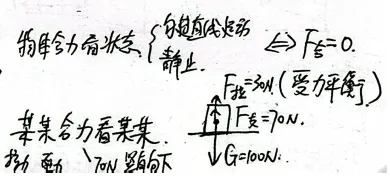 物体合力看状态 { 匀速直线运动
静止.
⇔ F合=0.
F拉=30N (受力平衡)
F支=70N.
G=100N.
某某合力看某某.
70N 竖向下